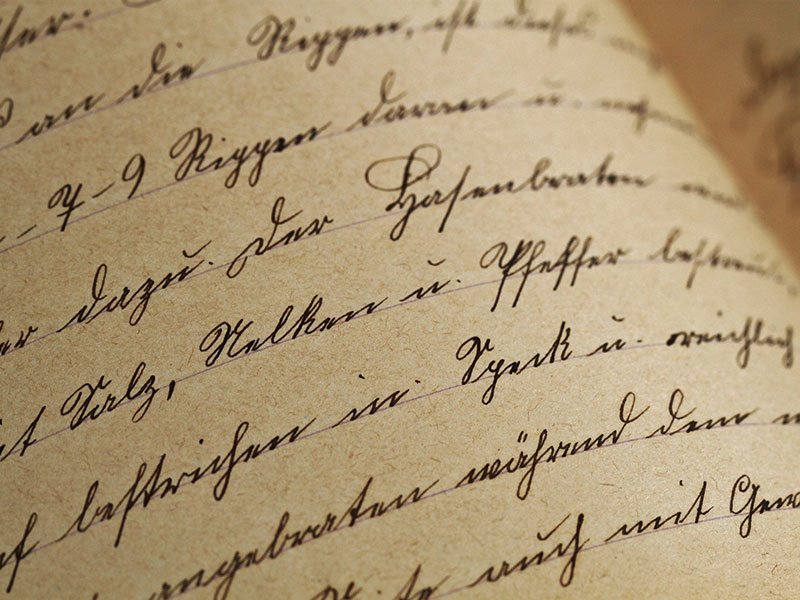 an die Rippen, ist dieses
- 7 - 9 Rippen daran u.
dazu. Der Hasenbraten
mit Salz, Nelken u. Pfeffer bestreut
bestrichen in Speck u. reichlich
angebraten während dem
auch mit